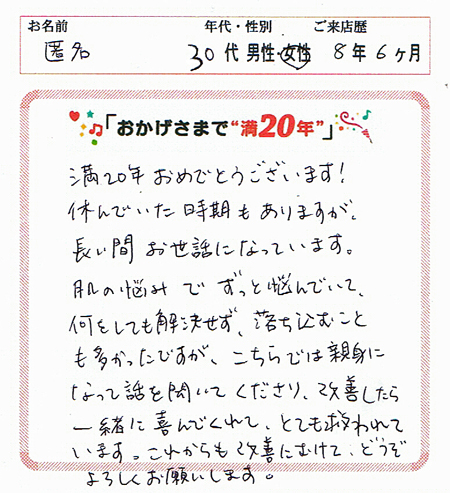 お名前 年代・性別 ご来店歴
匿名 30代 男性・女性 8年6ヶ月
「おかげさまで“満20年”」
満20年おめでとうございます!
休んでいた時期もありますが、
長い間お世話になっています。
肌の悩みでずっと悩んでいて、
何をしても解決せず、落ち込むこと
も多かったですが、こちらでは親身に
なって話を聞いてくださり、改善したら
一緒に喜んでくれて、とても救われて
います。これからも改善にむけて、どうぞ
よろしくお願いします。